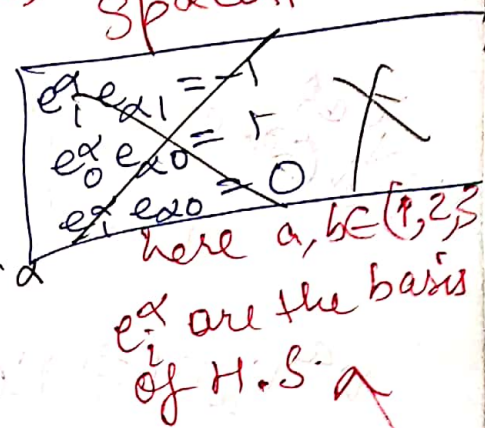 space
e^α_1 e_α1 = -1
e^α_0 e_α0 = 1
e^α_1 e_α0 = 0
α
here a, b ∈ (1,2,3
e^α_i are the basis
of H.S.